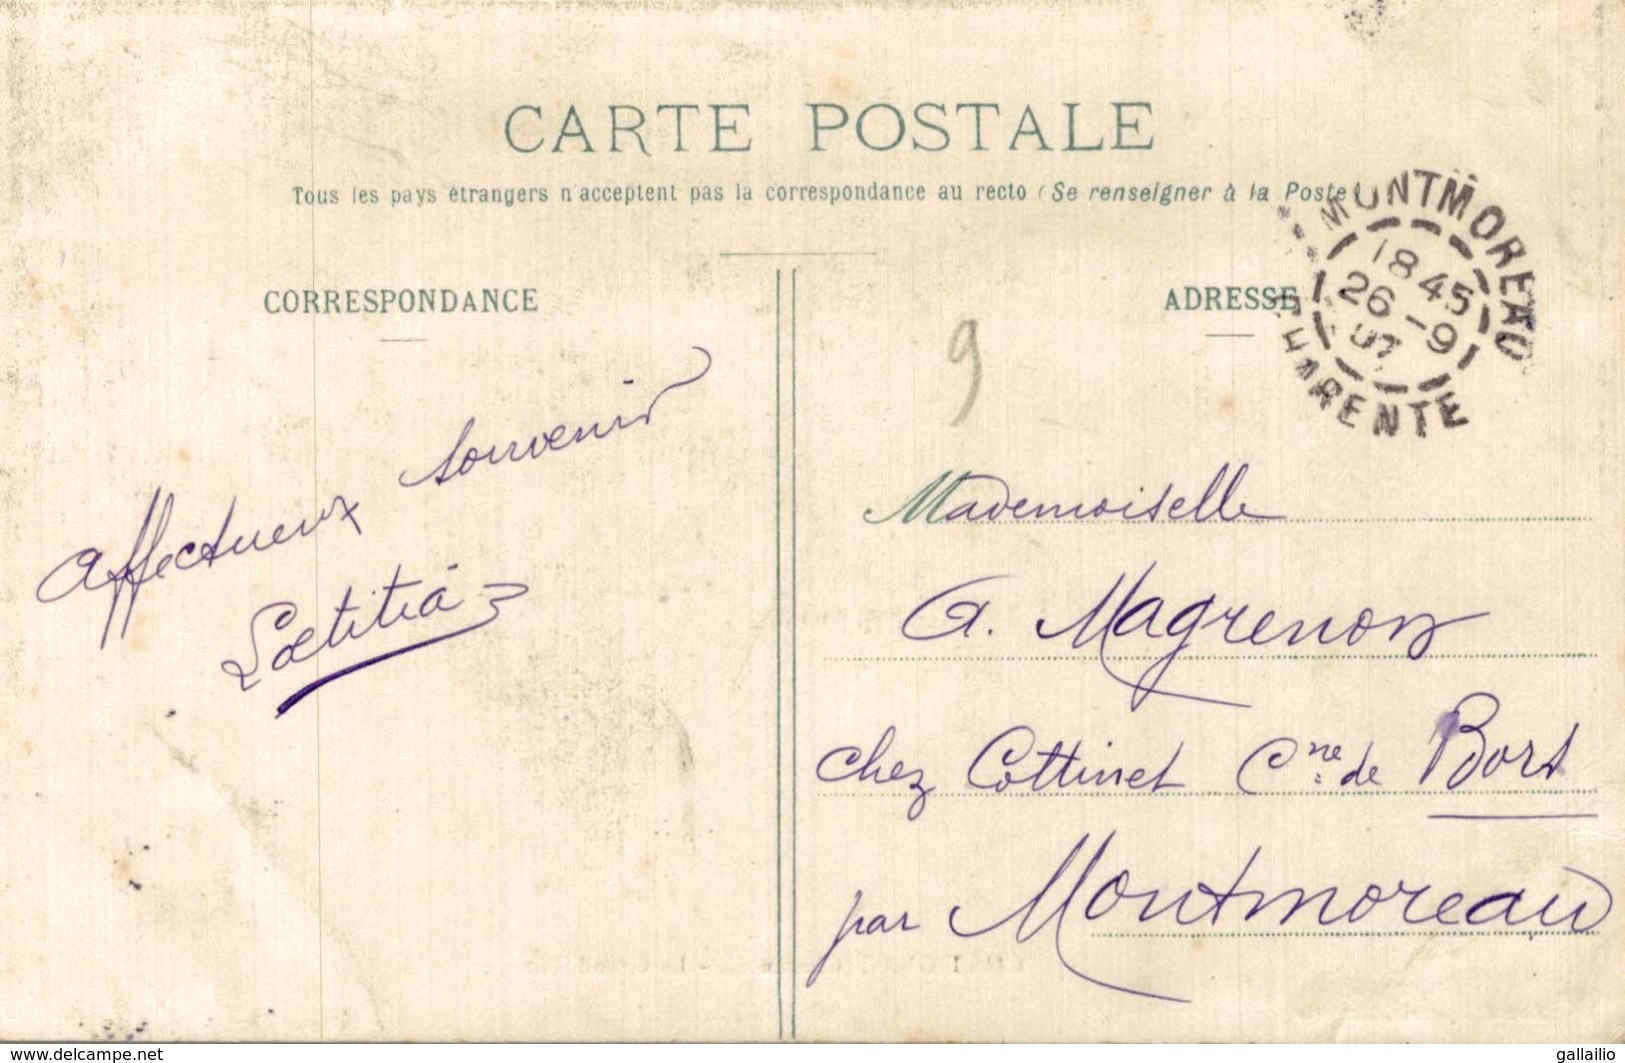 CARTE POSTALE
Tous les pays étrangers n'acceptent pas la correspondance au recto (Se renseigner à la Poste)
CORRESPONDANCE
ADRESSE
MONTMOREAU
18 45
26 -9
07
CHARENTE
9
Affectueux souvenir
Laetitia
Mademoiselle
A. Magrenon
chez Cottinet Cne de Bors
par Montmoreau
www.delcampe.net
gallailio